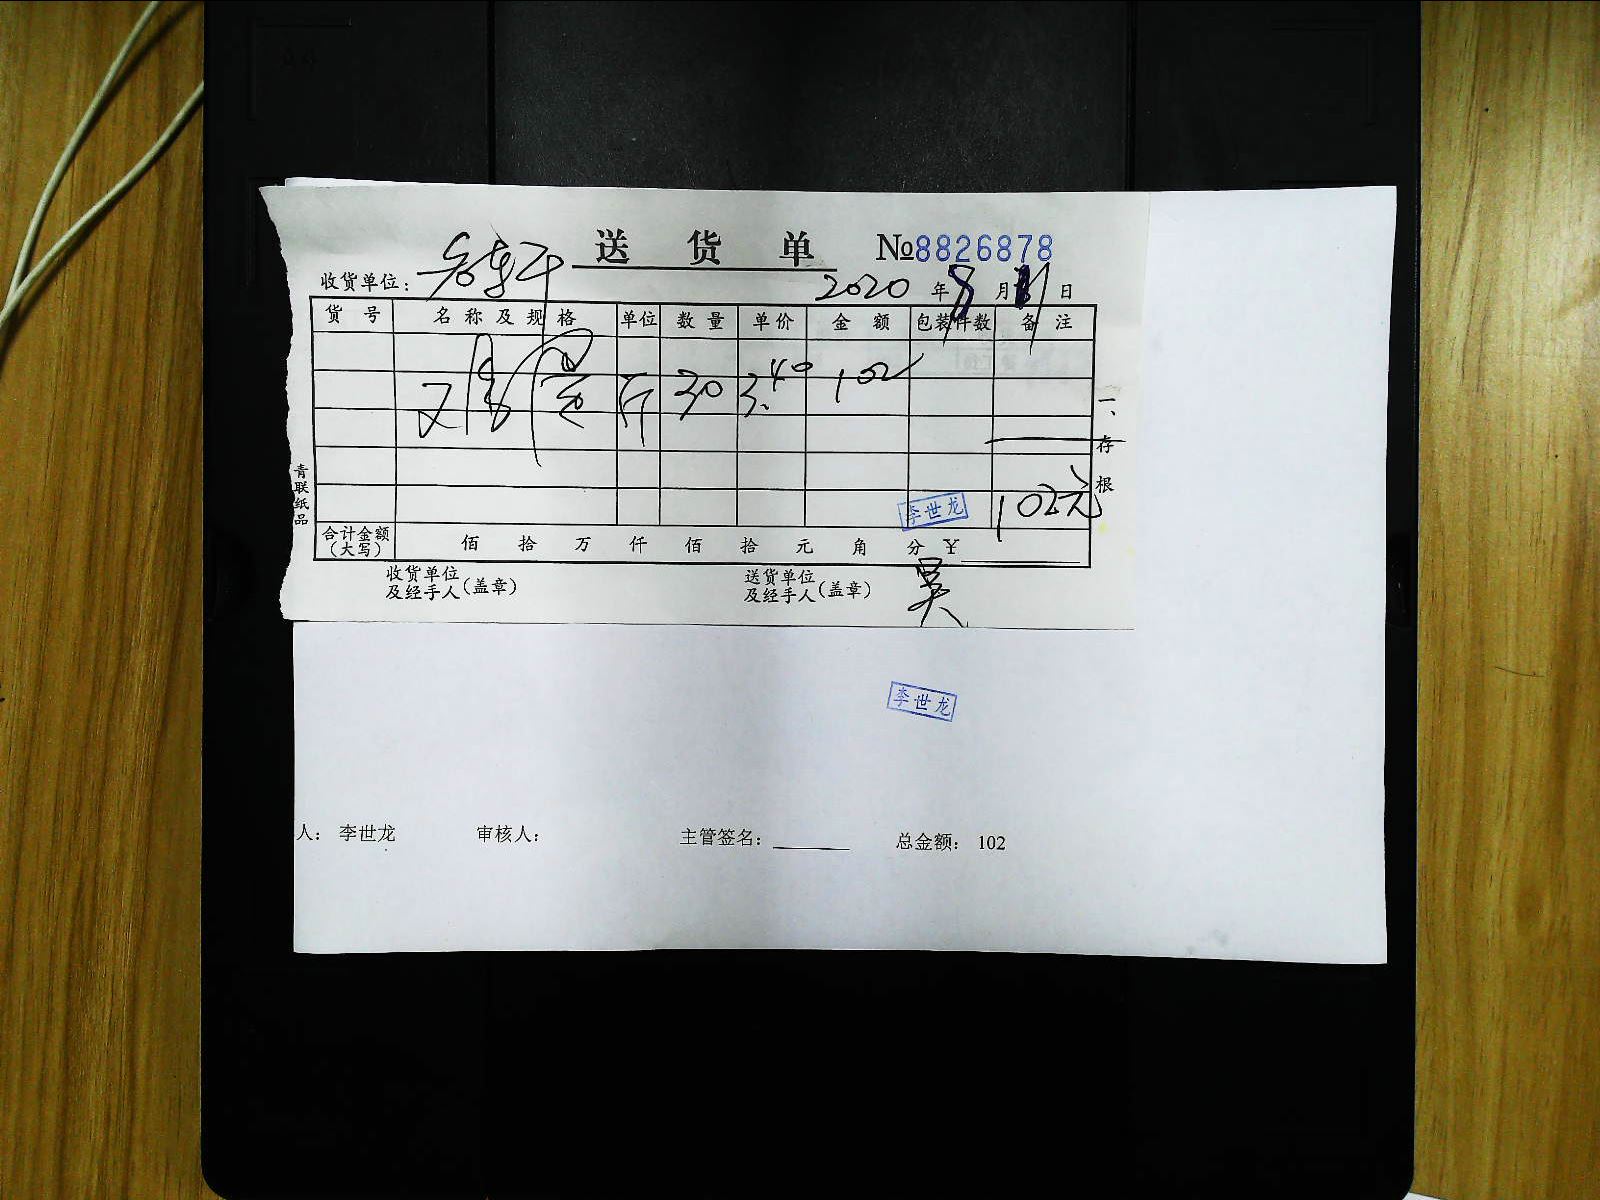 送货单 №8826878
收货单位：
2020年8月11日
货号 名称及规格 单位 数量 单价 金额 包装件数 备注
斤 30 3.40 102
一、存根
102元
李世龙
青联纸品
合计金额（大写） 佰 拾 万 仟 佰 拾 元 角 分 ¥
收货单位及经手人（盖章） 送货单位及经手人（盖章） 吴
李世龙
人： 李世龙 审核人： 主管签名： 总金额： 102